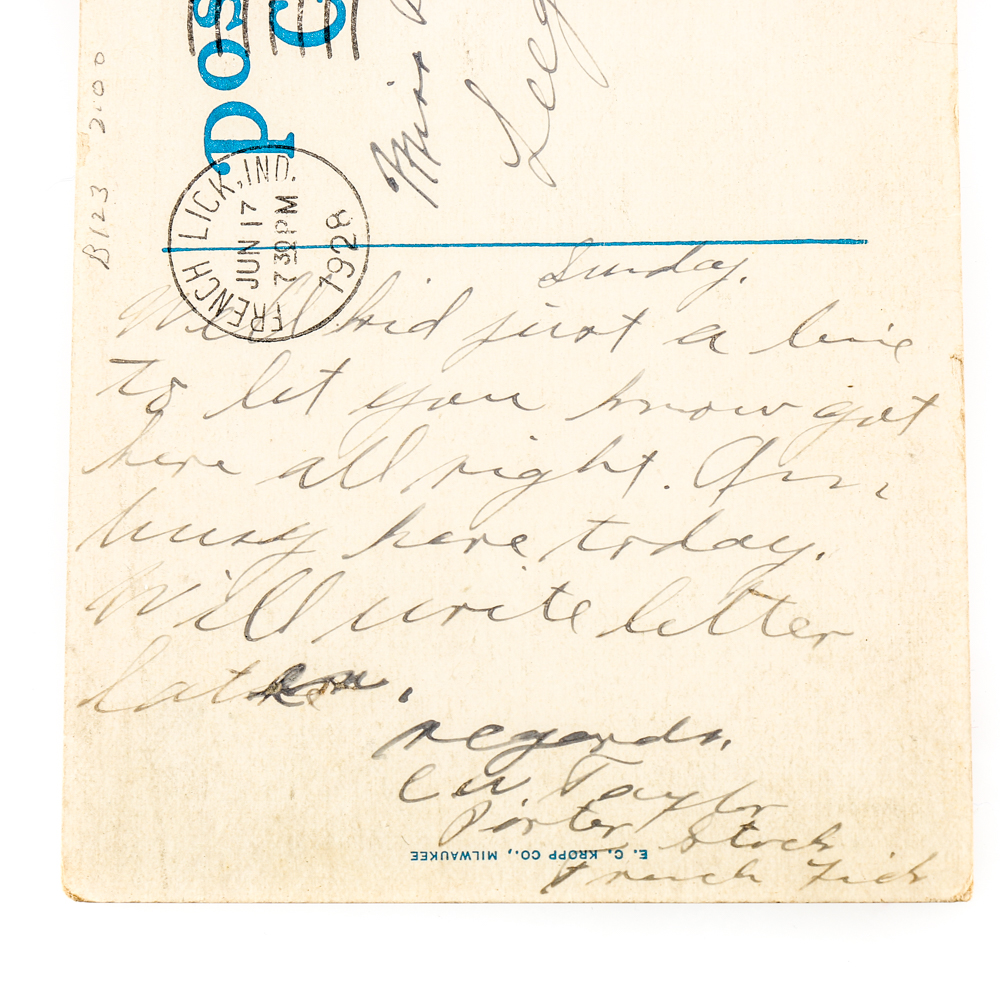 Post C
B123 2.00
FRENCH LICK, IND.
JUN 17
7 30 PM
1928
Miss
Sunday.
Well kid just a line
to let you know got
here all right. Am
busy here today.
Will write letter
later.
regards.
CW. Taylor
Porter Stock
French Lick
E. C. KROPP CO., MILWAUKEE